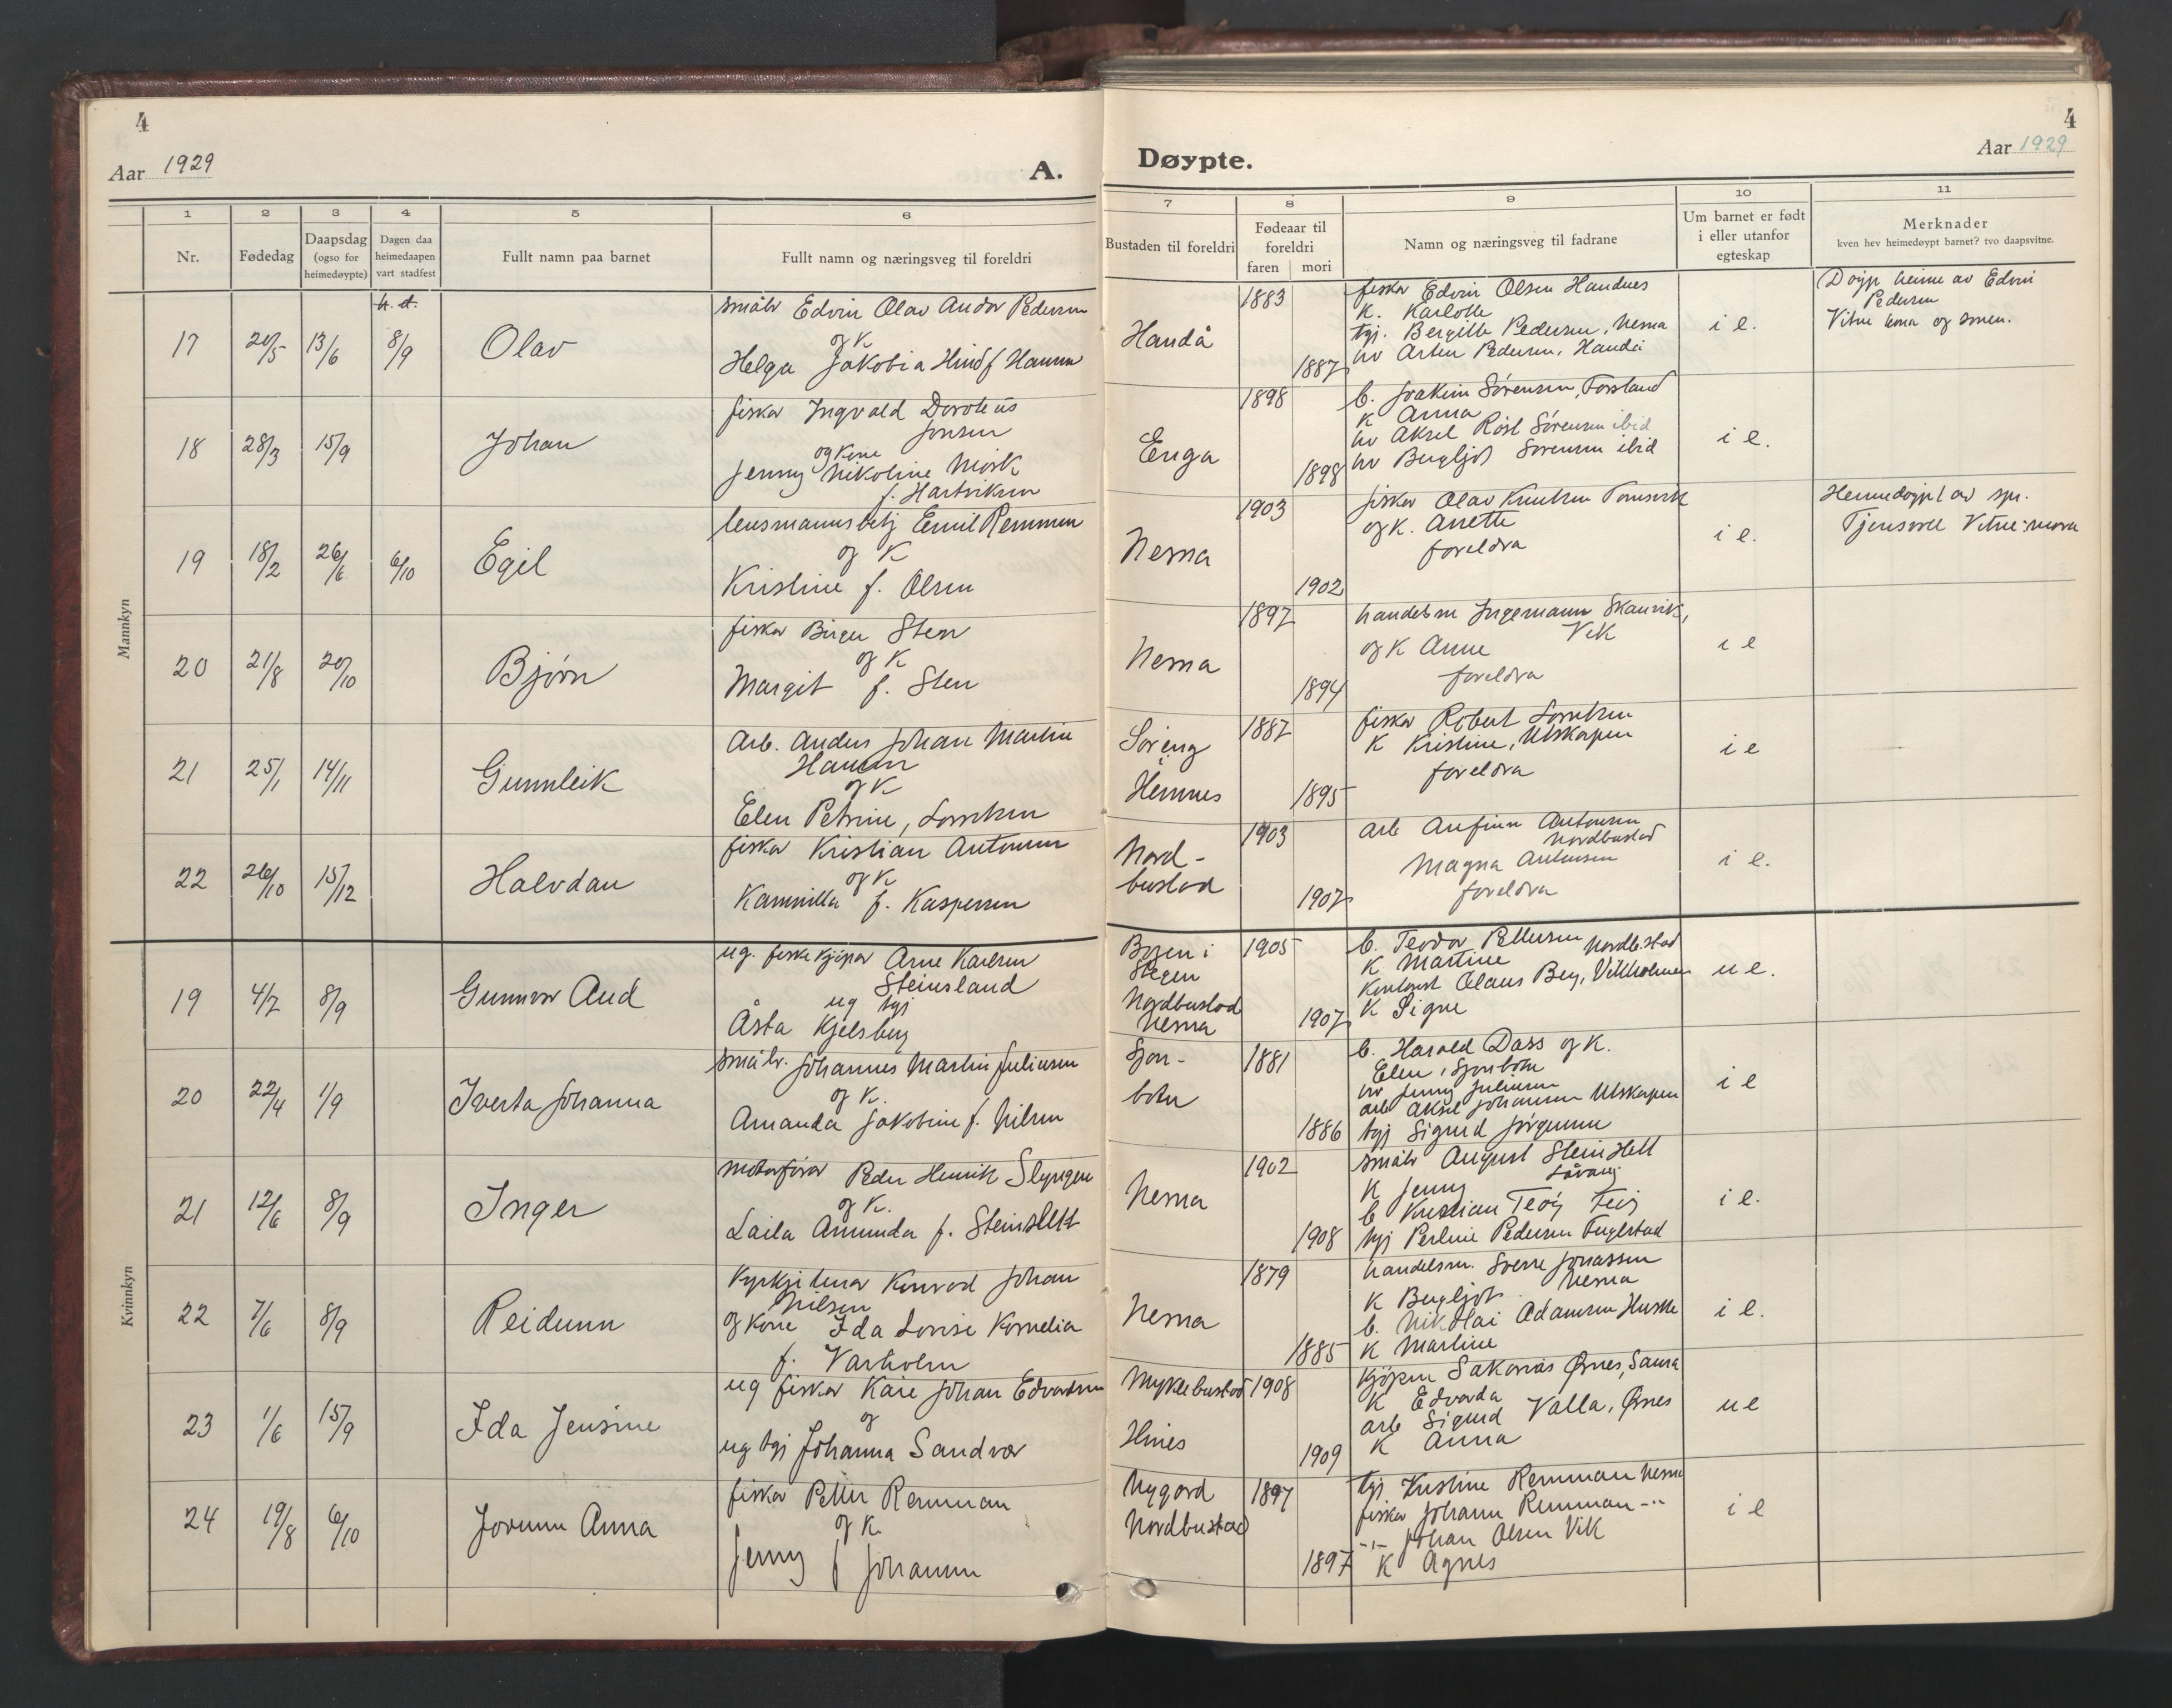 4
Aar 1929
A.
Døypte.
4
Aar 1929
1 2 3 4 5 6 7 8 9 10 11
Nr.
Fødedag
Daapsdag (ogso for heimedøypte)
Dagen daa heimedaapen vart stadfest
Fullt namn paa barnet
Fullt namn og næringsveg til foreldri
Bustaden til foreldri
Fødeaar til foreldri
faren mori
Namn og næringsveg til fadrane
Um barnet er født i eller utanfor egteskap
Merknader
kven hev heimedøypt barnet? tvo daapsvitne.
Mannkyn
h. d.
17 20/5 13/6 8/9 Olav
småbr Edvin Olav Andor Pedersen
og K
Helga Jakobia Hind f Hansen
Handå
1883
1887
fiskar Edvin Olsen Handnes
K. Karlotte
tgj. Bergitte Pedersen, Nesna
hv Asten Pedersen, Handå
i e.
Døyp heime av Edvin
Pedersen
Vitne kona og sonen.
18 28/3 15/9 Johan
fiskar Ingvald Doroteus
Jonsen
og Kone
Jenny Nikoline Mørk
f. Hartviksen
Enga
1898
1898
b. Joakim Sørensen, Forsland
K Anna
hv Aksel Røsl Sørensen ibid
hv Bergljot Sørensen ibid
i e.
19 18/2 26/6 6/10 Egil
lensmannsbetj Emil Remmen
og K
Kristine f. Olsen
Nesna
1903
1902
fiskar Olav Knutsen Tomsvik
og K. Anette
foreldra
i e.
Heimedøypt av spr.
Tjensvoll Vitne: mora
20 21/8 20/10 Bjørn
fiskar Birger Sten
og K
Margit f. Sten
Nesna
1897
1894
handelsm Ingemann Skauvik,
Vik
og K Anne
foreldra
i e
21 25/1 14/11 Gunnleik
Arb. Anders Johan Martin
Hansen
og K
Elen Petrine, Lorntsen
Søreng
i
Hemnes
1887
1895
fiskar Robert Lorntsen
K Kristine, Utskarpen
foreldra
i e
22 26/10 15/12 Halvdan
fiskar Kristian Antonsen
og K
Kamilla f. Kaspersen
Nord-
bustad
1903
1907
arb Anfinn Antonsen
Nordbustad
Magna Antonsen
foreldra
i e.
Kvinnkyn
19 4/7 8/9 Gunnvor Aud
ug. fiskekjøpar Arne Karlsen
Steinsland
ug tgj
Åsta Kjelsberg
Bogen i
Steigen
Nordbustad
Nesna
1905
1907
b. Teodor Pettersen Nordbustad
K Martine
Kontorist Olaus Berg, Vikholmen
K Signe
u e.
20 22/4 1/9 Iverta Johanna
småbr. Johannes Martin Juliusen
og K.
Amanda Jakobine f. Nilsen
Sjon-
botn
1881
1886
b. Harald Dass og K.
Elen, Sjonbotn
hv Jenny Juliusen
arb Aksel Johansen Utskarpen
tgj Sigrid Jørgensen
i e
21 12/6 8/9 Inger
motorførar Peder Henrik Slyngen
og K.
Laila Amanda f. Steinslett
Nesna
1902
1908
småbr August Steinslett
Løvang
K Jenny
b Kristian Teøy Teøy
tgj Perline Pedersen Fuglstad
i e.
22 7/6 8/9 Reidunn
Kyrkjetenar Konrad Johan
Nilsen
og Kone Ida Lovise Kornelia
f. Varholm
Nesna
1879
1885
handelsm. Sverre Jonassen
Nesna
K Bergljot
b. Nikolai Adamsen Husne
K Martine
i e.
23 1/6 15/9 Ida Jensine
ug fiskar Kåre Johan Edvardsen
og
ug tgj Johanna Sandvær
Myklebustad
Hines
1908
1909
kjøpm Sakarias Ørnes, Saura
K Edvarda
arb Sigurd Valla, Ørnes
K Anna
u e
24 19/8 6/10 Jorunn Anna
fiskar Petter Remman
og K.
Jenny f Johansen
Nygard
Nordbustad
1897
1897
tgj. Kristine Remman Nesna
fiskar Johann Remman -"-
-"- Johan Olsen Vik
K Agnes
i e